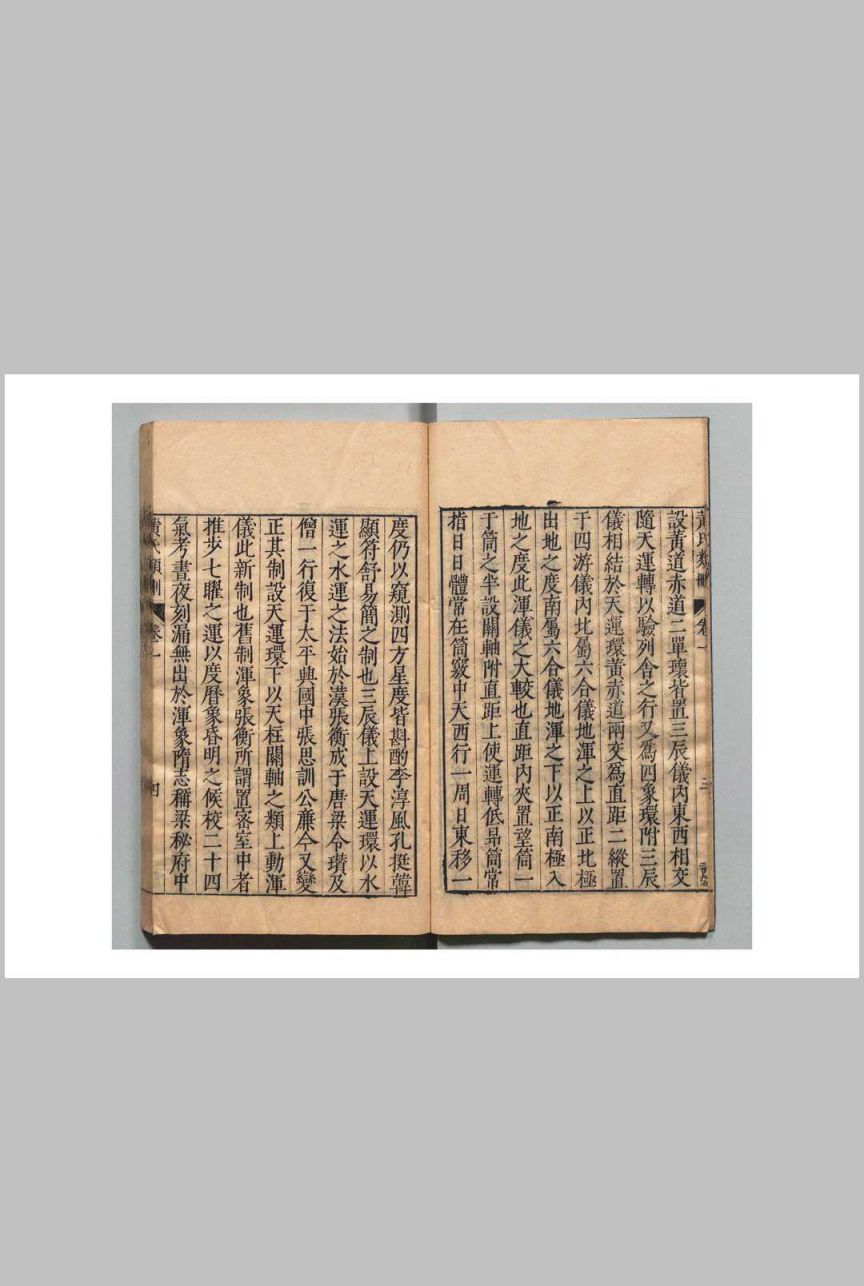 黃氏類刪 卷一 三
設黃道赤道二單環皆置三辰儀內東西相交
隨天運轉以驗列舍之行又為四象環附三辰
儀相結於天運環黃赤道兩交為直距二縱置
于四游儀內北屬六合儀地渾之上以正北極
出地之度南屬六合儀地渾之下以正南極入
地之度此渾儀之大較也直距內夾置望筒一
于筒之半設關軸附直距上使運轉低昻筒常
指日日體常在筒竅中天西行一周日東移一
度仍以窺測四方星度皆斟酌李淳風孔挺韓
顯符舒易簡之制也三辰儀上設天運環以水
運之水運之法始於漢張衡成于唐梁令瓚及
僧一行復于太平興國中張思訓公廉今又變
正其制設天運環下以天柱關軸之類上動渾
儀此新制也舊制渾象張衡所謂置宻室中者
推步七曜之運以度曆象昏明之候校二十四
氣考晝夜刻漏無出於渾象隋志稱梁秘府中
黃氏類刪 卷一 四